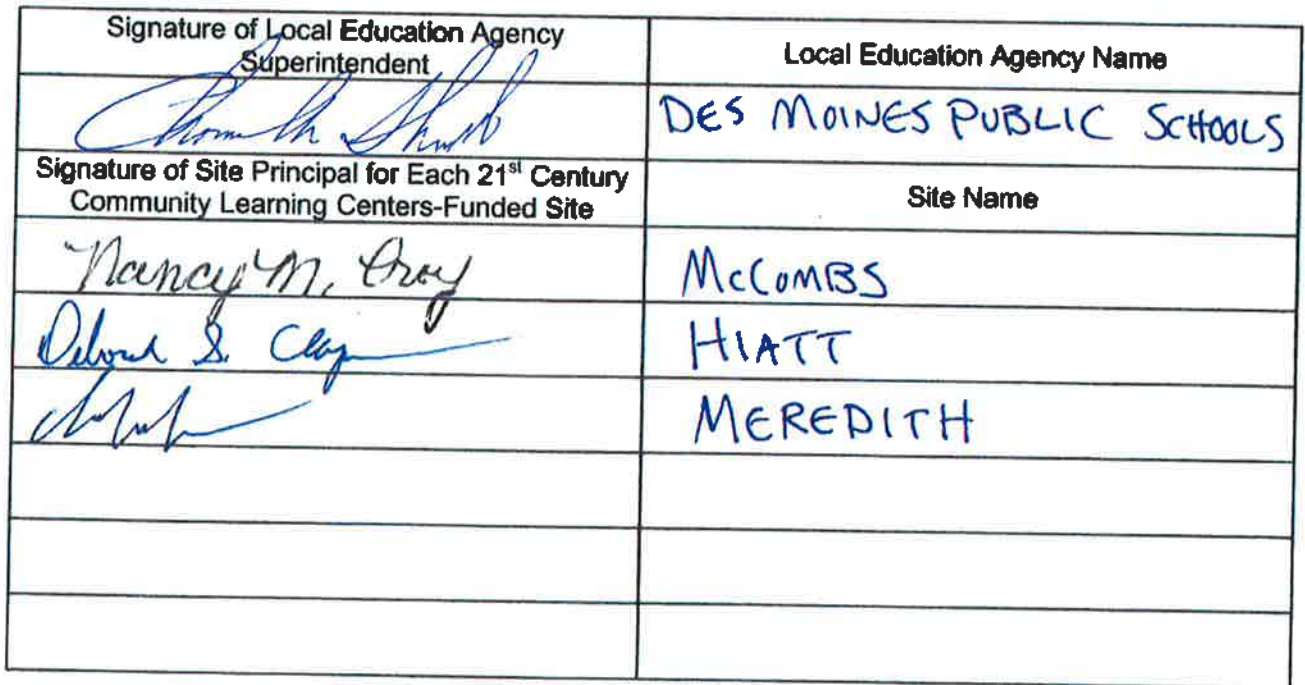 Signature of Local Education Agency
Superintendent
Local Education Agency Name
DES MOINES PUBLIC SCHOOLS
Signature of Site Principal for Each 21st Century
Community Learning Centers-Funded Site
Site Name
Nancy M. Croy
McCOMBS
Deborah S.
HIATT
MEREDITH